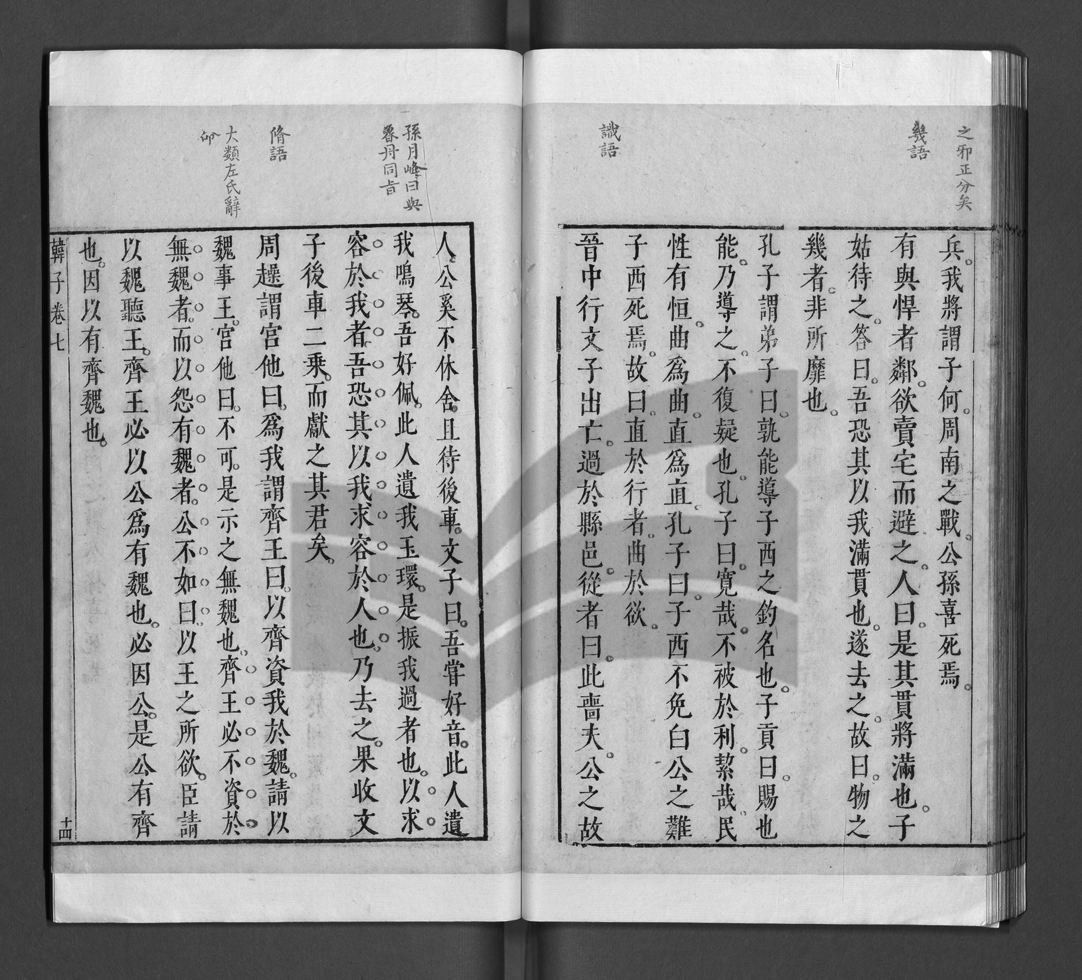 之邪正分矣
幾語
識語
兵。我將謂子何。周南之戰。公孫喜死焉。
有與悍者鄰。欲賣宅而避之。人曰。是其貫將滿也。子
姑待之。答曰。吾恐其以我滿貫也。遂去之。故曰。物之
幾者。非所靡也。
孔子謂弟子曰。孰能導子西之釣名也。子貢曰。賜也
能。乃導之。不復疑也。孔子曰。寬哉。不被於利。絜哉。民
性有恒。曲爲曲。直爲直。孔子曰。子西不免白公之難
子西死焉。故曰。直於行者。曲於欲。
晉中行文子出亡。過於縣邑。從者曰。此嗇夫。公之故
孫月峰曰與
魯丹同旨
隋語
大類左氏辭
命
人。公奚不休舍。且待後車。文子曰。吾嘗好音。此人遺
我鳴琴。吾好佩。此人遺我玉環。是振我過者也。以求
容於我者。吾恐其以我求容於人也。乃去之。果收文
子後車二乘。而獻之其君矣。
周趮謂宮他曰。爲我謂齊王曰。以齊資我於魏。請以
魏事王。宮他曰。不可。是示之無魏也。齊王必不資於
無魏者。而以怨有魏者。公不如曰。以王之所欲。臣請
以魏聽王。齊王必以公爲有魏也。必因公。是公有齊
也。因以有齊魏也。
韓子卷七
十四